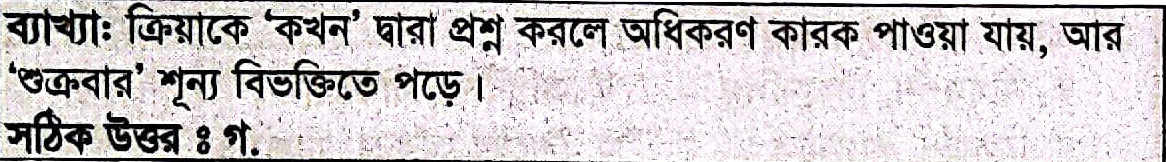 ব্যাখ্যা: ক্রিয়াকে ‘কখন’ দ্বারা প্রশ্ন করলে অধিকরণ কারক পাওয়া যায়, আর
‘শুক্রবার’ শূন্য বিভক্তিতে পড়ে।
সঠিক উত্তর ঃ গ.